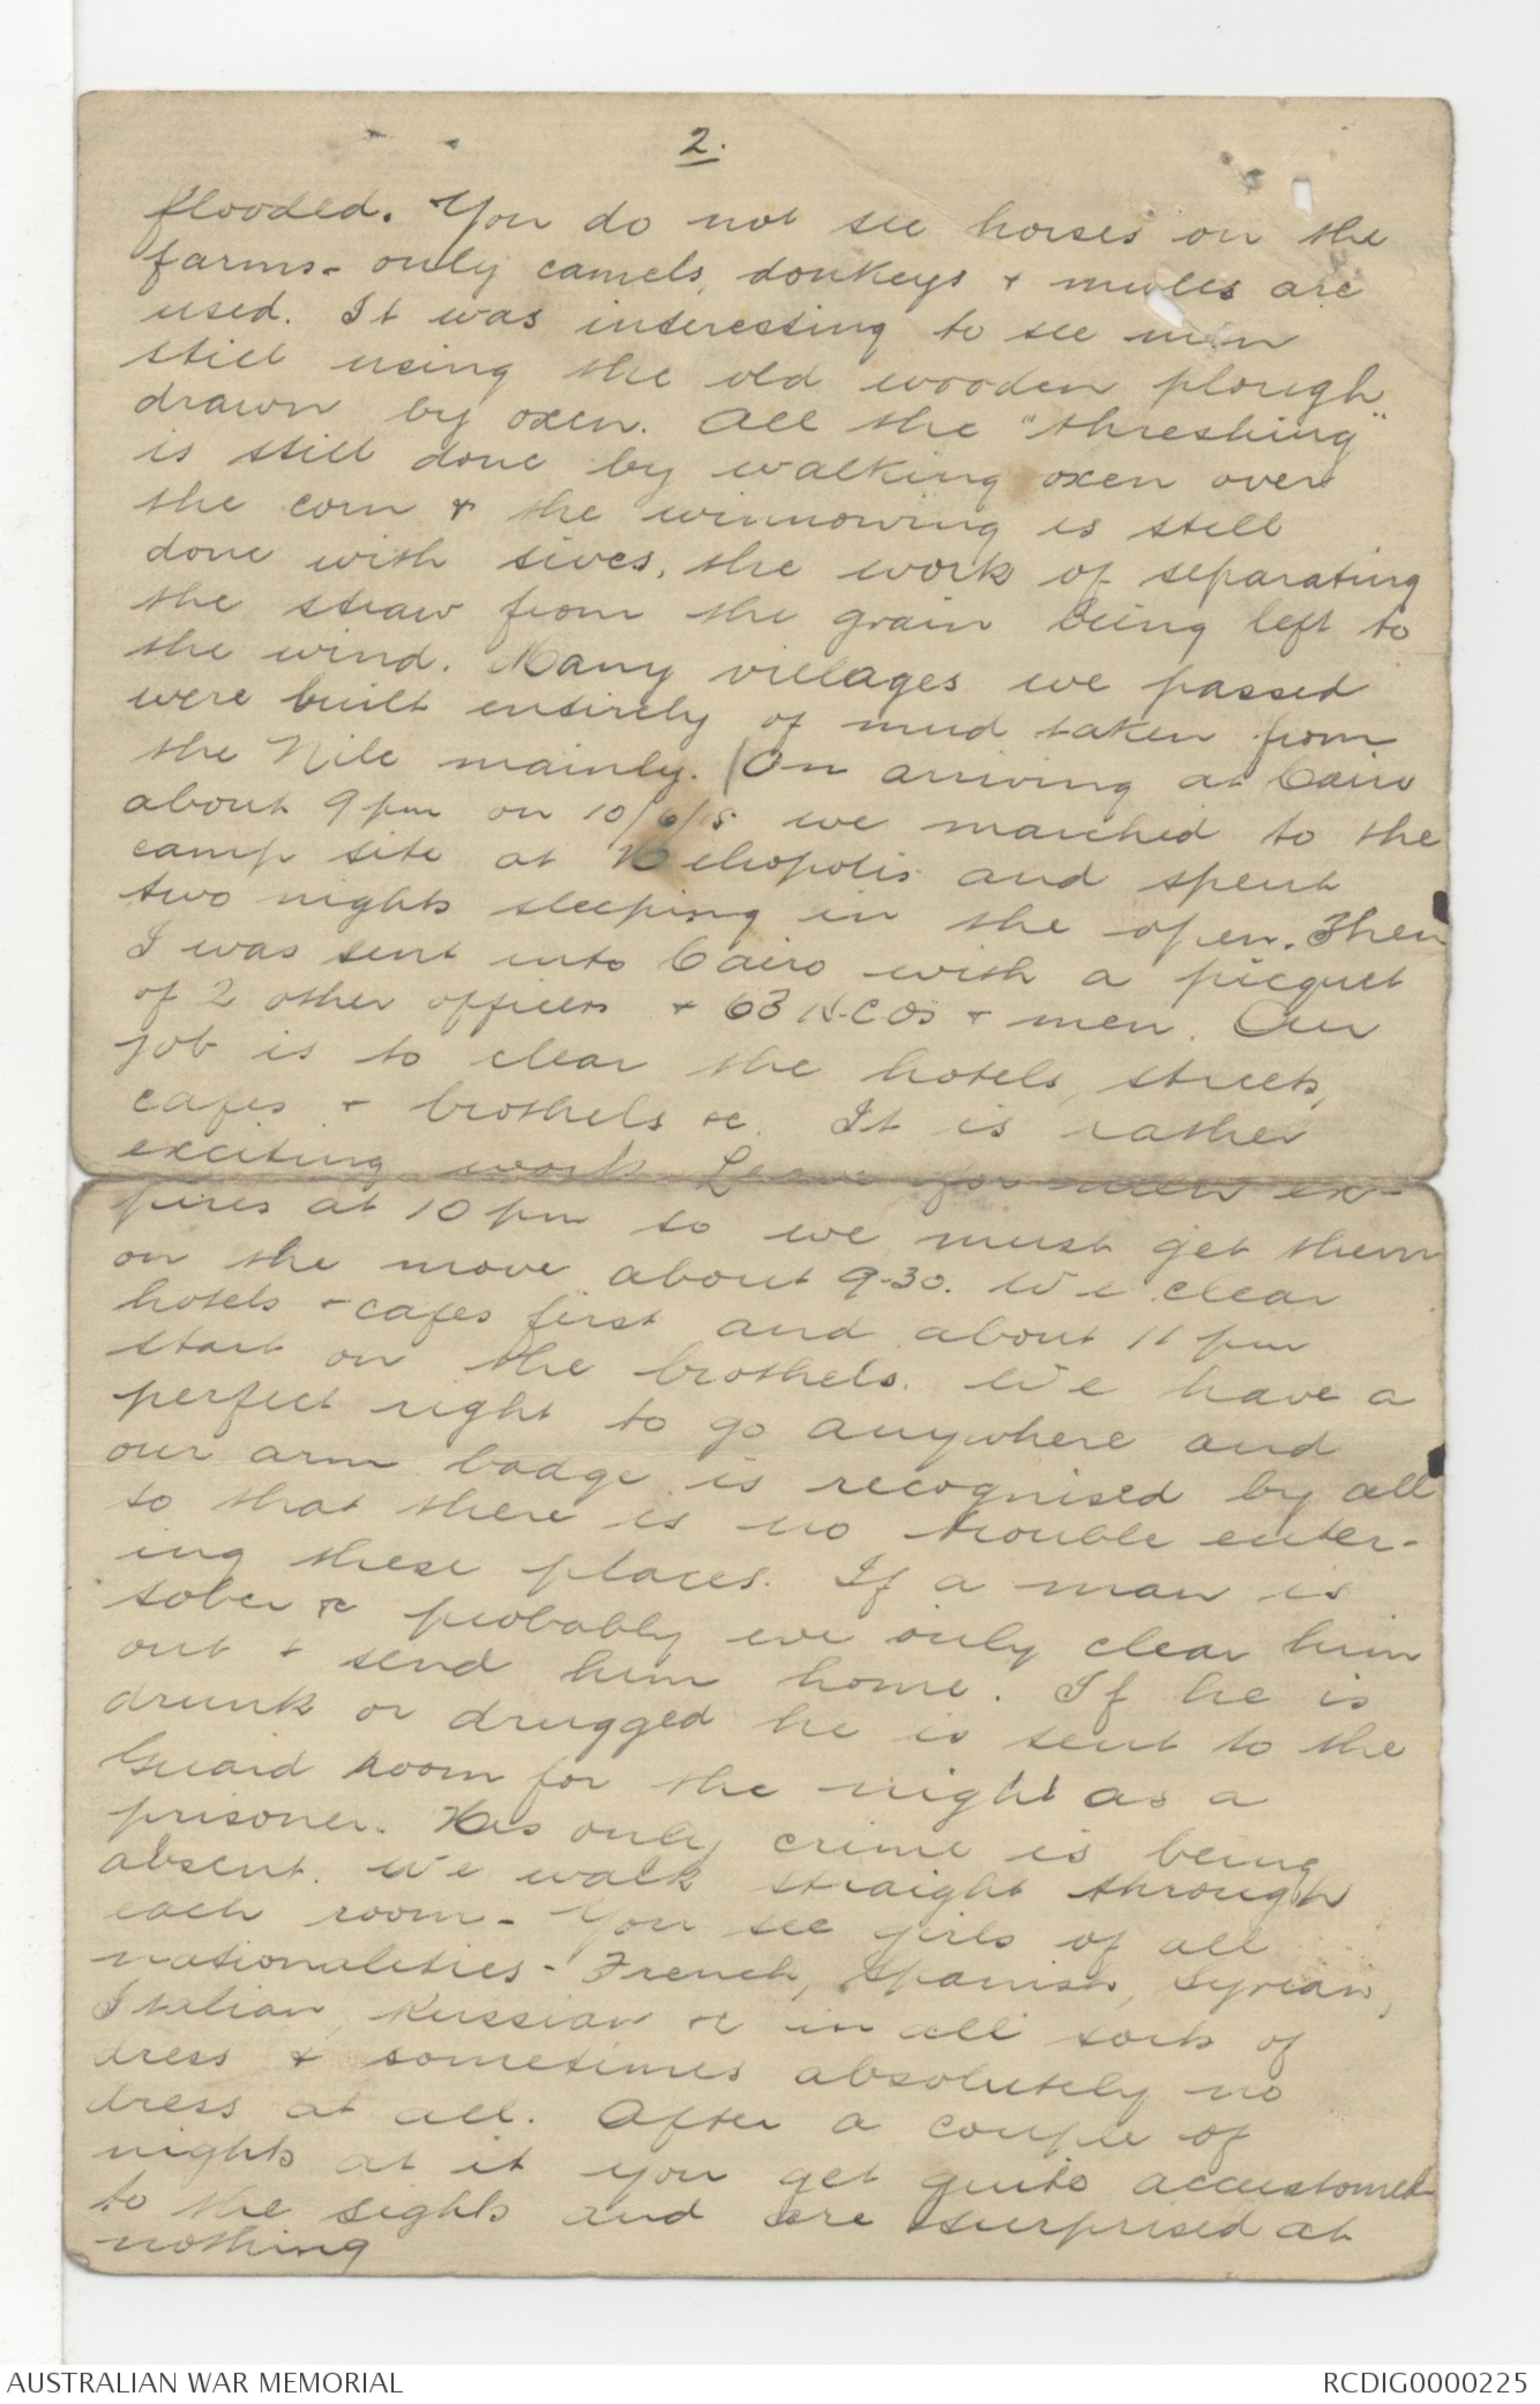 2.
flooded. You do not see horses on the
farms - only camels, donkeys & mules are
used. It was interesting to see men
still using the old wooden plough
drawn by oxen. All the "threshing"
is still done by walking oxen over
the corn & the winnowing is still
done with sives, the work of separating
the straw from the grain being left to
the wind. Many villages we passed
were built entirely of mud taken from
the Nile mainly. / On arriving at Cairo
about 9 pm on 10/6/15 we marched to the
camp site at Heliopolis and spent
two nights sleeping in the open. Then
I was sent into Cairo with a picquet
of 2 other officers & 63 N.C.Os & men. Our
job is to clear the hotels, streets,
cafes & brothels &c. It is rather
exciting work. Leave for men ex-
pires at 10 pm so we must get them
on the move about 9.30. We clear
hotels & cafes first and about 11 pm
start on the brothels. We have a
perfect right to go anywhere and
our arm badge is recognised by all
so that there is no trouble enter-
ing these places. If a man is
sober &c probably we only clear him
out & send him home. If he is
drunk or drugged he is sent to the
Guard Room for the night as a
prisoner. His only crime is being
absent. We walk straight through
each room - You see girls of all
nationalities - French, Spanish, Syrian,
Italian, Russian &c in all sorts of
dress & sometimes absolutely no
dress at all. After a couple of
nights at it you get quite accustomed
to the sights and are surprised at
nothing
AUSTRALIAN WAR MEMORIAL
RCDIG0000225